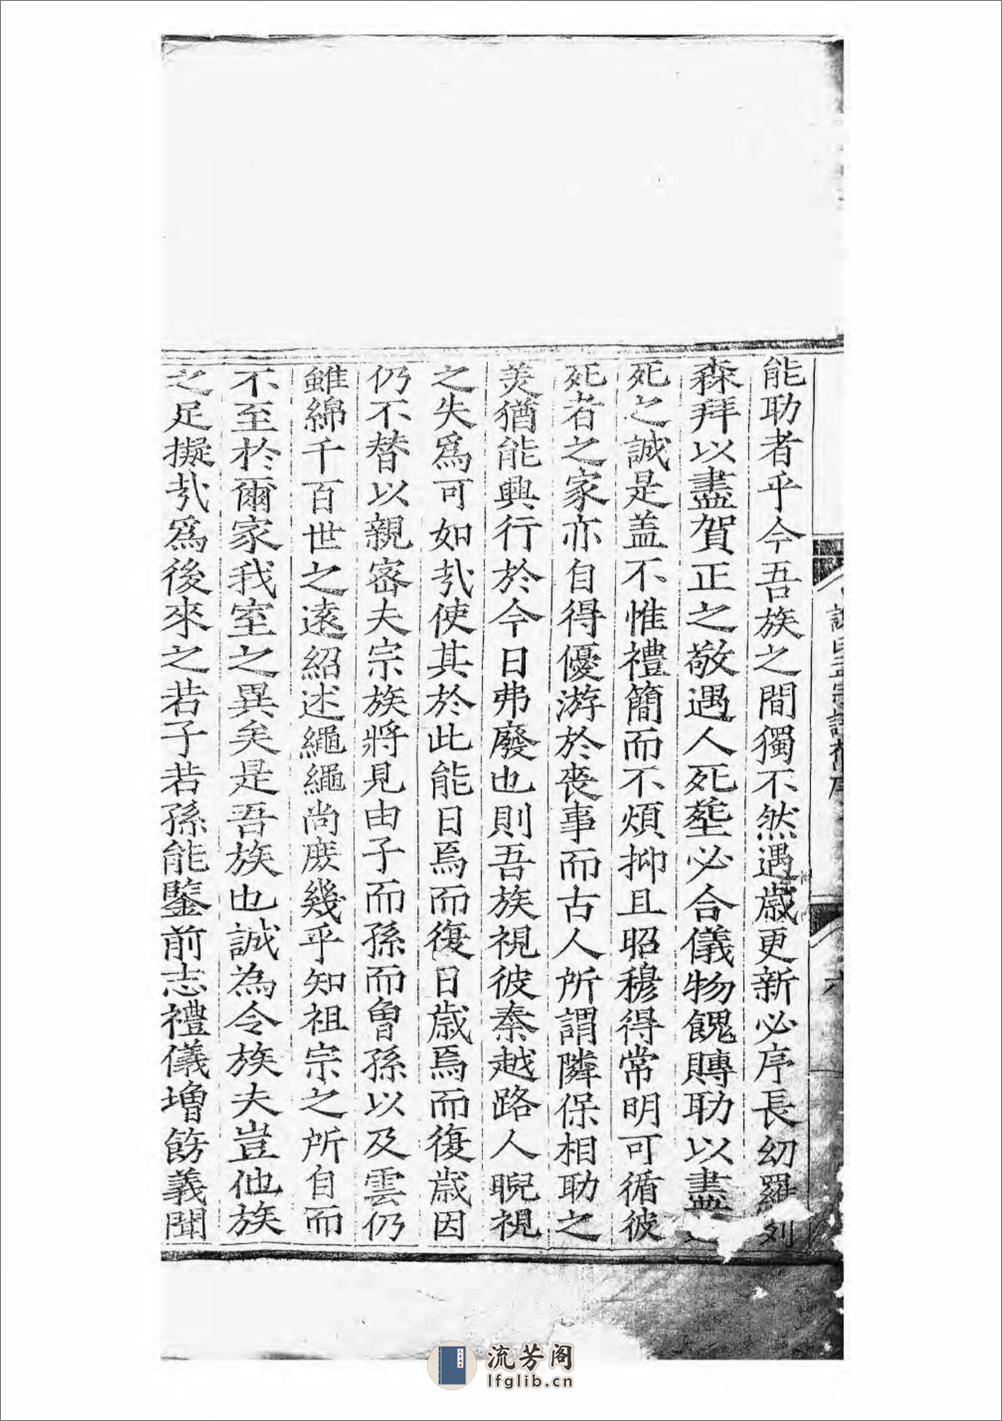 能助者乎今吾族之間獨不然遇歲更新必序長幼羅列
森拜以盡賀正之敬遇人死塟必合儀物餽賻助以盡
死之誠是盖不惟禮簡而不煩抑且昭穆得常明可循彼
死者之家亦自得優游於喪事而古人所謂隣保相助之
羙猶能興行於今日弗廢也則吾族視彼秦越路人睨視
之失爲可如㢤使其於此能日焉而復日歲焉而復歲因
仍不替以親宻夫宗族將見由子而孫而曾孫以及雲仍
雖綿千百世之遠紹述繩繩尚庻幾乎知祖宗之所自而
不至於爾家我室之異矣是吾族也誠為令族夫豈他族
之足擬㢤爲後來之若子若孫能鑒前志禮儀増飭義聞
流芳阁
lfglib.cn